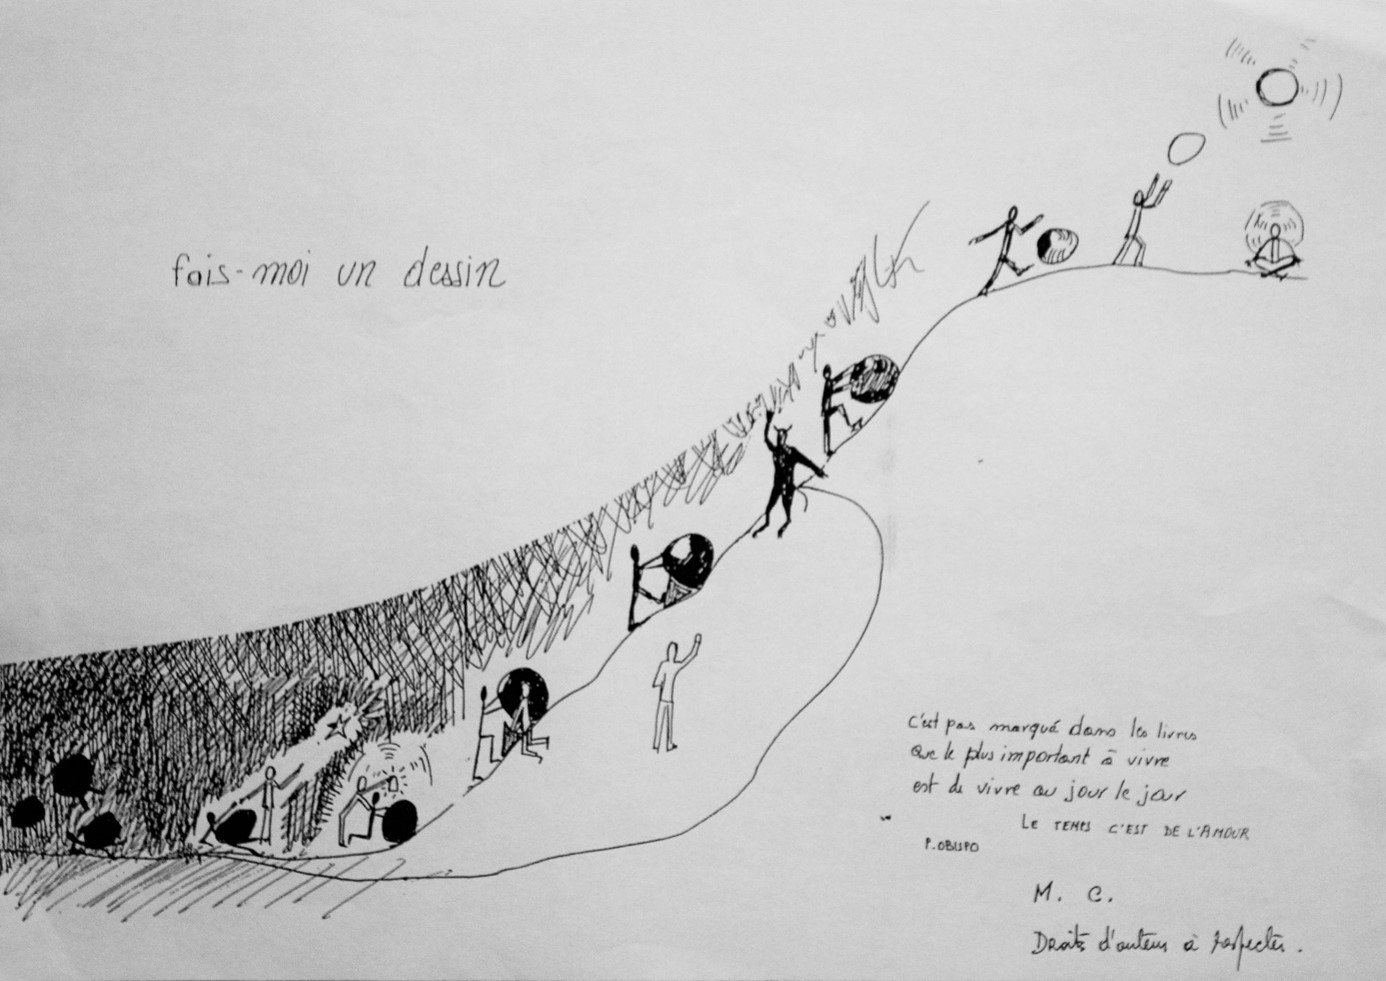 fais-moi un dessin
c'est pas marqué dans les livres
que le plus important à vivre
est de vivre au jour le jour
LE TEMPS C'EST DE L'AMOUR
P. OBISPO
M. C.
Droits d'auteur à respecter.